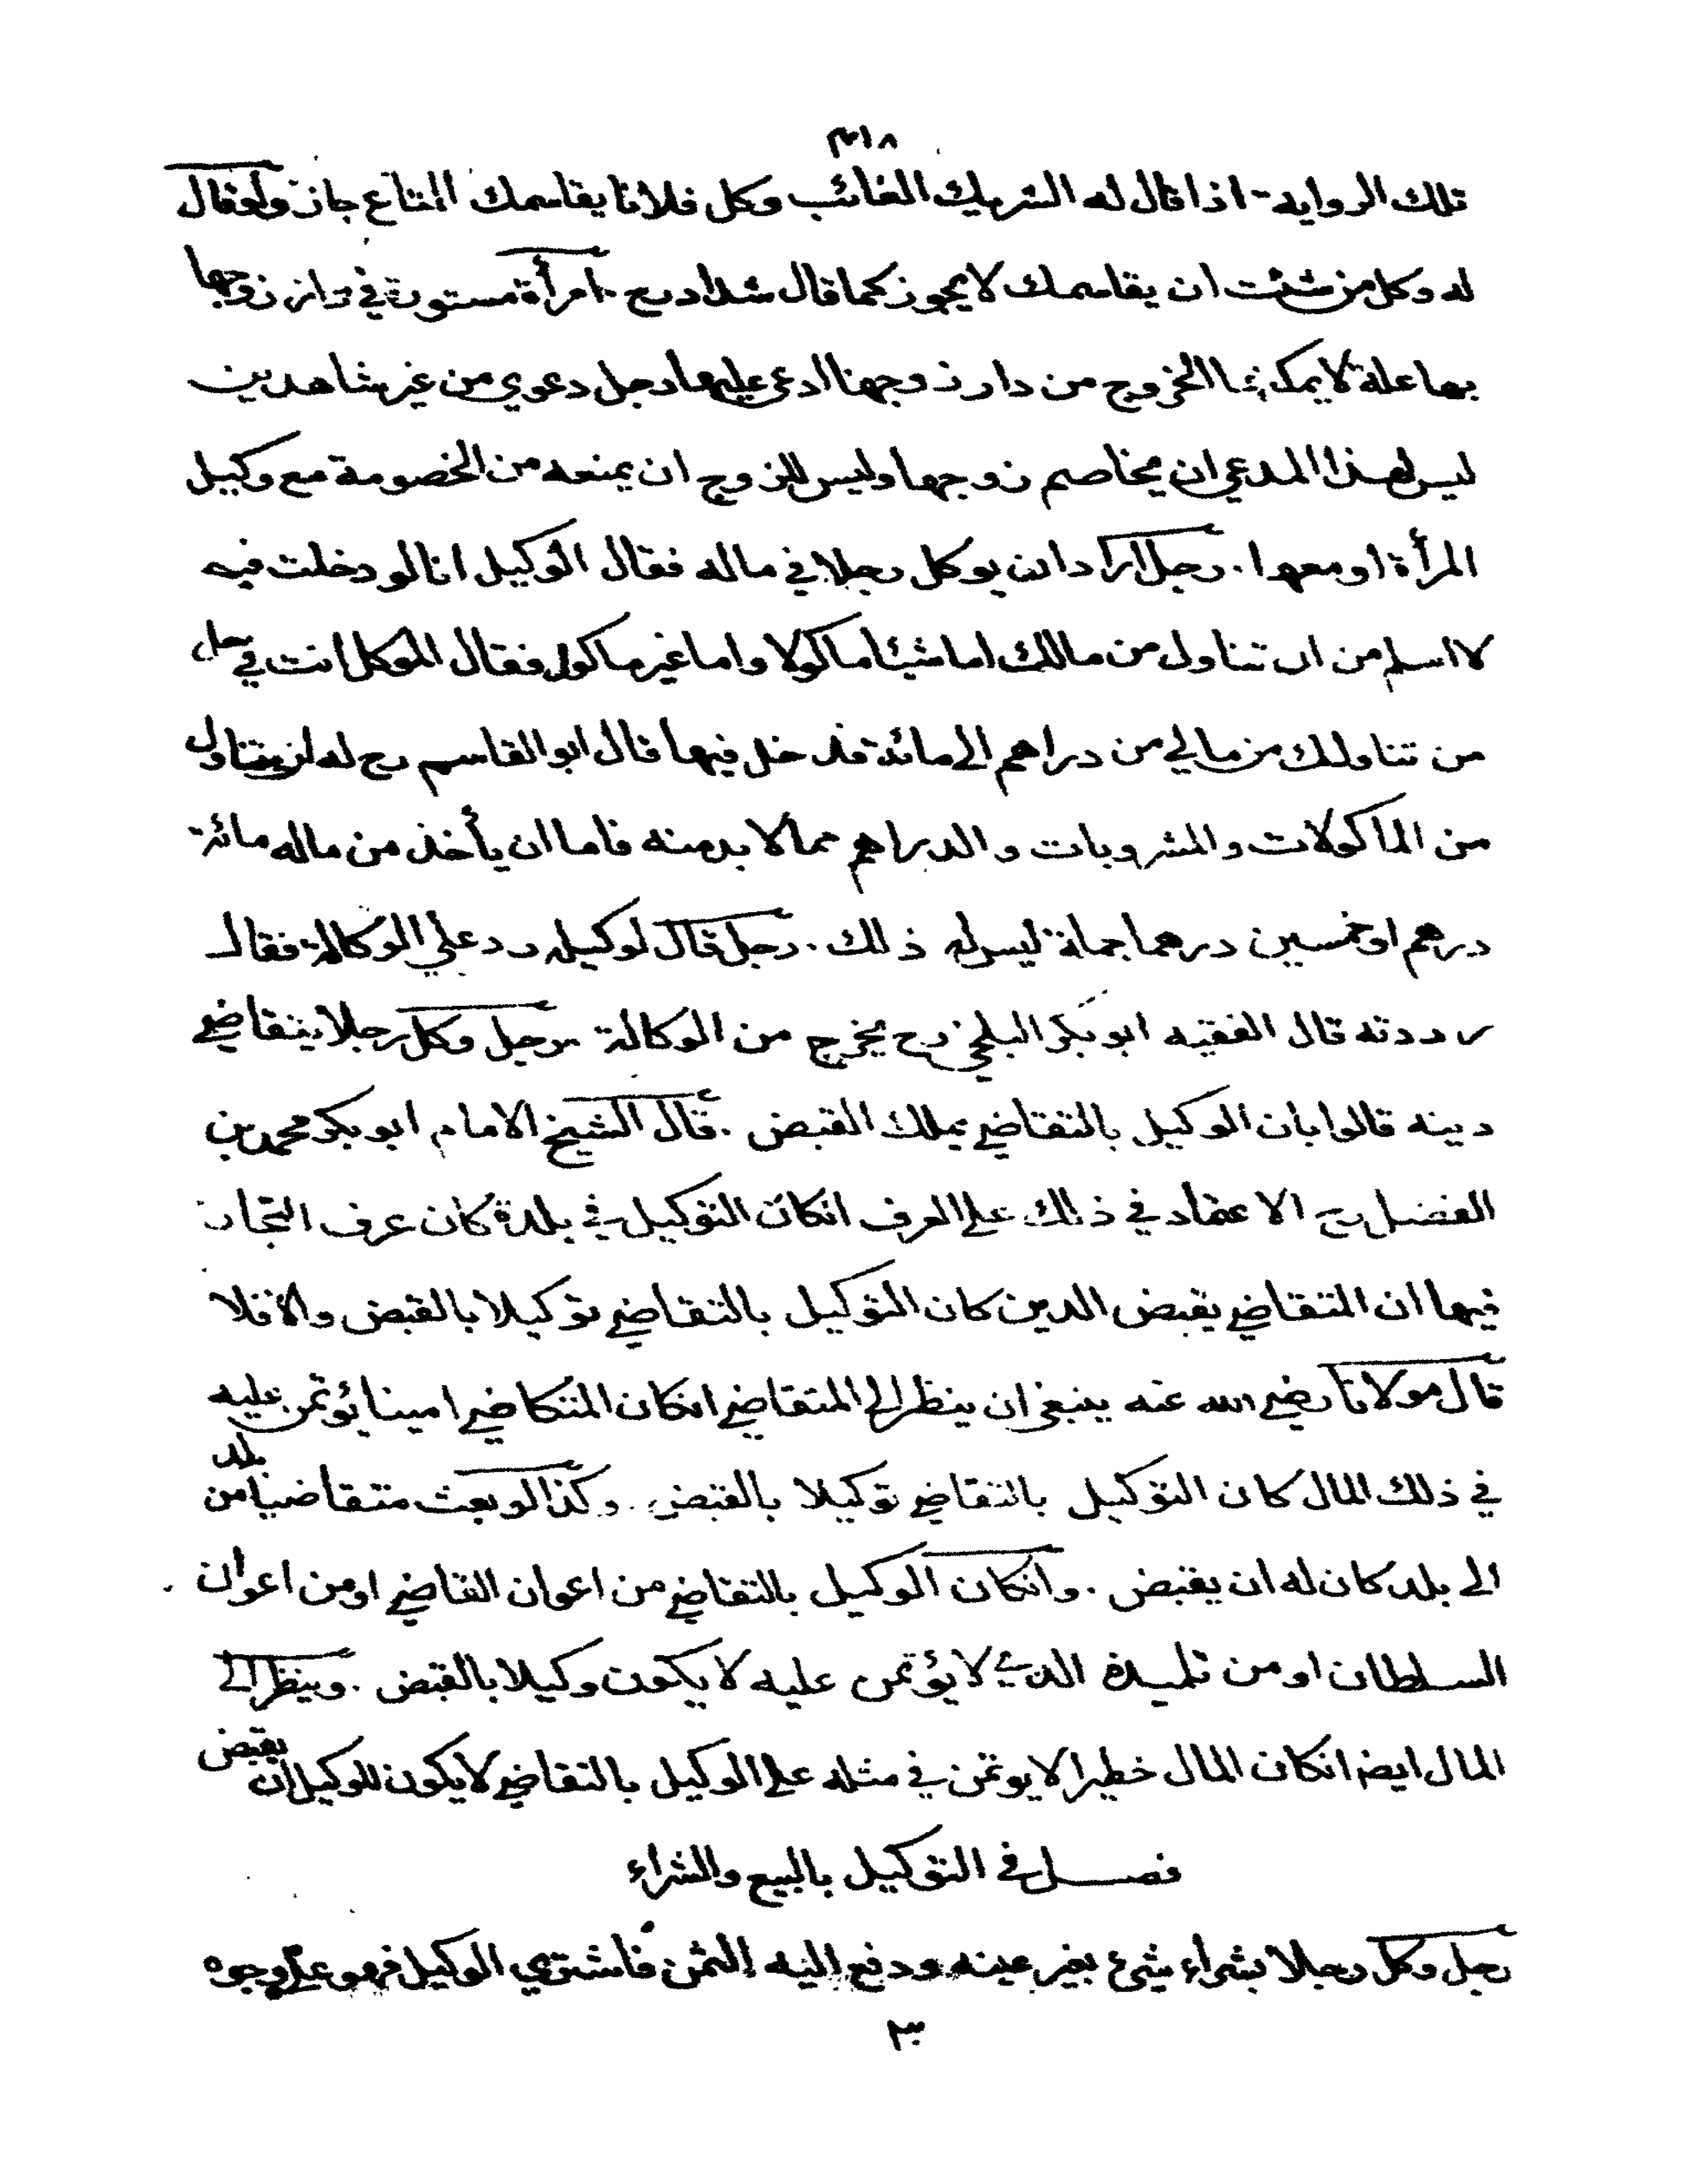 ٣١٨
تلك الرواية اذا قال له الشريك الغائب وكل فلانا يقاسمك المتاع جاز ولو قال
له وكل من شئت ان يقاسمك لا يجوز كما قال شداد رح امرأة مستورة في دار زوجها
بها علة لا يمكنها الخروج من دار زوجها ادعى عليها رجل دعوي من غير شاهدين
ليس لهذا المدعي ان يخاصم زوجها وليس للزوج ان يمنعه من الخصومة مع وكيل
المرأة او معها . رجل اراد ان يوكل رجلا في ماله فقال الوكيل انا لو دخلت فيه
لا اسلم من ان تناول من مالك اما شيئا ماكولا واما غير ماكول فقال الموكل انت في حل
من تناولك من مالي من دراهم الى مائة فدخل فيها قال ابو القاسم رح له ان يتناول
من الماكولات والمشروبات والدراهم مما لا بد منه فاما ان يأخذ من ماله مائة
درهم او خمسين درهما جملة ليس له ذلك . رجل قال لوكيله رد علي الوكالة فقال
رددته قال الفقيه ابو بكر البلخي رح يخرج من الوكالة رجل وكل رجلا يتقاضي
دينه قالوا بان الوكيل بالتقاضي يملك القبض . قال الشيخ الامام ابو بكر محمد بن
الفضل رح الاعتماد في ذلك على العرف انكان التوكيل في بلدة كان عرف التجار
فيها ان المتقاضي يقبض الدين كان التوكيل بالتقاضي توكيلا بالقبض والا فلا
قال مولانا رضي الله عنه ينبغي ان ينظر الى المتقاضي انكان المتكاضي امينا يؤتمن عليه
في ذلك المال كان التوكيل بالتقاضي توكيلا بالقبض . وكذا لو بعث متقاضيا من بلد
الى بلد كان له ان يقبض . وانكان الوكيل بالتقاضي من اعوان القاضي او من اعوان
السلطان او من تلميذه الذي لا يؤتمن عليه لا يكون وكيلا بالقبض . وينظر الى
المال ايضا انكان المال خطيرا لا يوتمن في مثله على الوكيل بالتقاضي لا يكون للوكيل ان يقبض
فصل في التوكيل بالبيع والشراء
رجل وكل رجلا بشراء شيئ بغير عينه ودفع اليه الثمن فاشتري الوكيل فهو على وجوه